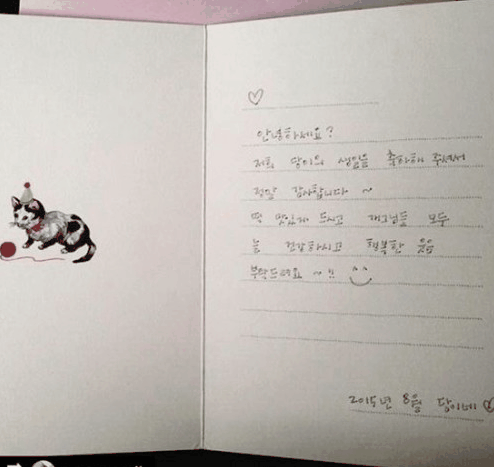 ♡
안녕하세요?
저희 담이의 생일을 축하해 주셔서
정말 감사합니다 ~
떡 맛있게 드시고 모두
늘 건강하시고 행복한 웃음
부탁드려요 ~!! ^^
2015년 8월 담이네